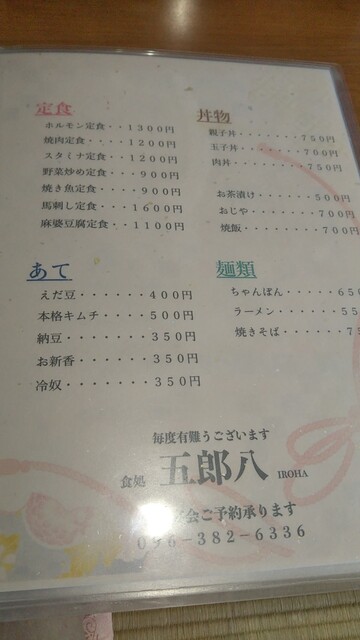 定食
ホルモン定食・・１３００円
焼肉定食・・・・１２００円
スタミナ定食・・１２００円
野菜炒め定食・・・９００円
焼き魚定食・・・・９００円
馬刺し定食・・・１６００円
麻婆豆腐定食・・１１００円
丼物
親子丼・・・・・・・７５０円
玉子丼・・・・・・・７００円
肉丼・・・・・・・・７５０円
お茶漬け・・・・・・５００円
おじや・・・・・・・７００円
焼飯・・・・・・・・７００円
あて
えだ豆・・・・・・・４００円
本格キムチ・・・・・５００円
納豆・・・・・・・・３５０円
お新香・・・・・・・３５０円
冷奴・・・・・・・・３５０円
麺類
ちゃんぽん・・・・・６５０
ラーメン・・・・・・５５
焼きそば・・・・・・７５
毎度有難うございます
食処 五郎八 IROHA
会ご予約承ります
096-382-6336